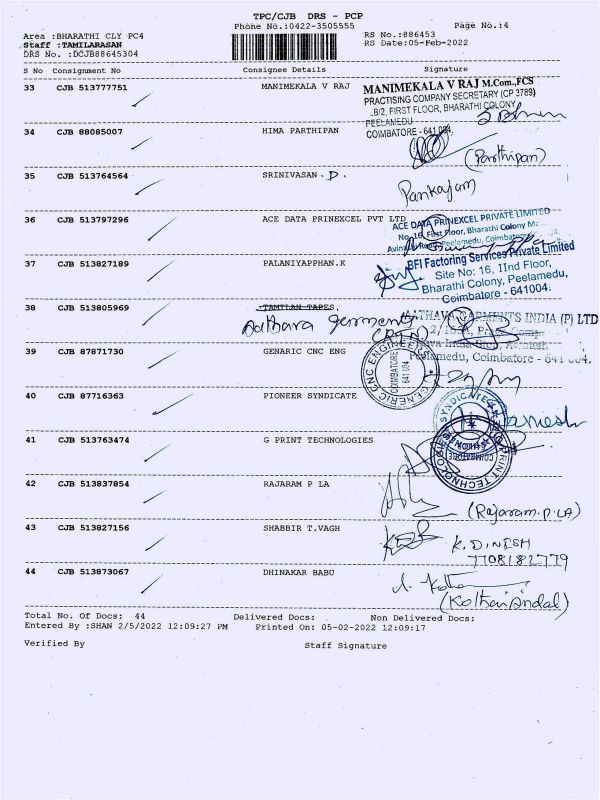 TPC/CJB DRS - PCP
Phone No.:0422-3505555 Page No.:4
Area :BHARATHI CLY PC4 RS No.:886453
Staff :TAMILARASAN RS Date:05-Feb-2022
DRS No. :DCJB88645304
S No Consignment No Consignee Details Signature
33 CJB 513777751 MANIMEKALA V RAJ
MANIMEKALA V RAJ M.Com.,FCS
PRACTISING COMPANY SECRETARY (CP 3789)
B/2, FIRST FLOOR, BHARATHI COLONY
PEELAMEDU
COIMBATORE - 641004.
34 CJB 88085007 HIMA PARTHIPAN
(Parthipan)
35 CJB 513764564 SRINIVASAN .D.
Pankajam
36 CJB 513797296 ACE DATA PRINEXCEL PVT LTD
ACE DATA PRINEXCEL PRIVATE LIMITED
No. 16, First Floor, Bharathi Colony
Peelamedu, Coimbatore
37 CJB 513827189 PALANIYAPPHAN.K
BFI Factoring Services Private Limited
Site No: 16, IInd Floor,
Bharathi Colony, Peelamedu,
Coimbatore - 641004.
38 CJB 513805969 TAMILAN TAPES,
GARMENTS INDIA (P) LTD
Peelamedu, Coimbatore - 641 004.
39 CJB 87871730 GENARIC CNC ENG
GENERIC CNC ENGINEER
COIMBATORE
641 004
40 CJB 87716363 PIONEER SYNDICATE
SYNDICATE
41 CJB 513763474 G PRINT TECHNOLOGIES
PRINT TECHNOLOGIES
42 CJB 513837854 RAJARAM P LA
(Rajaram.P.LA)
43 CJB 513827156 SHABBIR T.VAGH
K. DINESH
7708182779
44 CJB 513873067 DHINAKAR BABU
Total No. Of Docs: 44 Delivered Docs: Non Delivered Docs:
Entered By :SHAN 2/5/2022 12:09:27 PM Printed On: 05-02-2022 12:09:17
Verified By Staff Signature